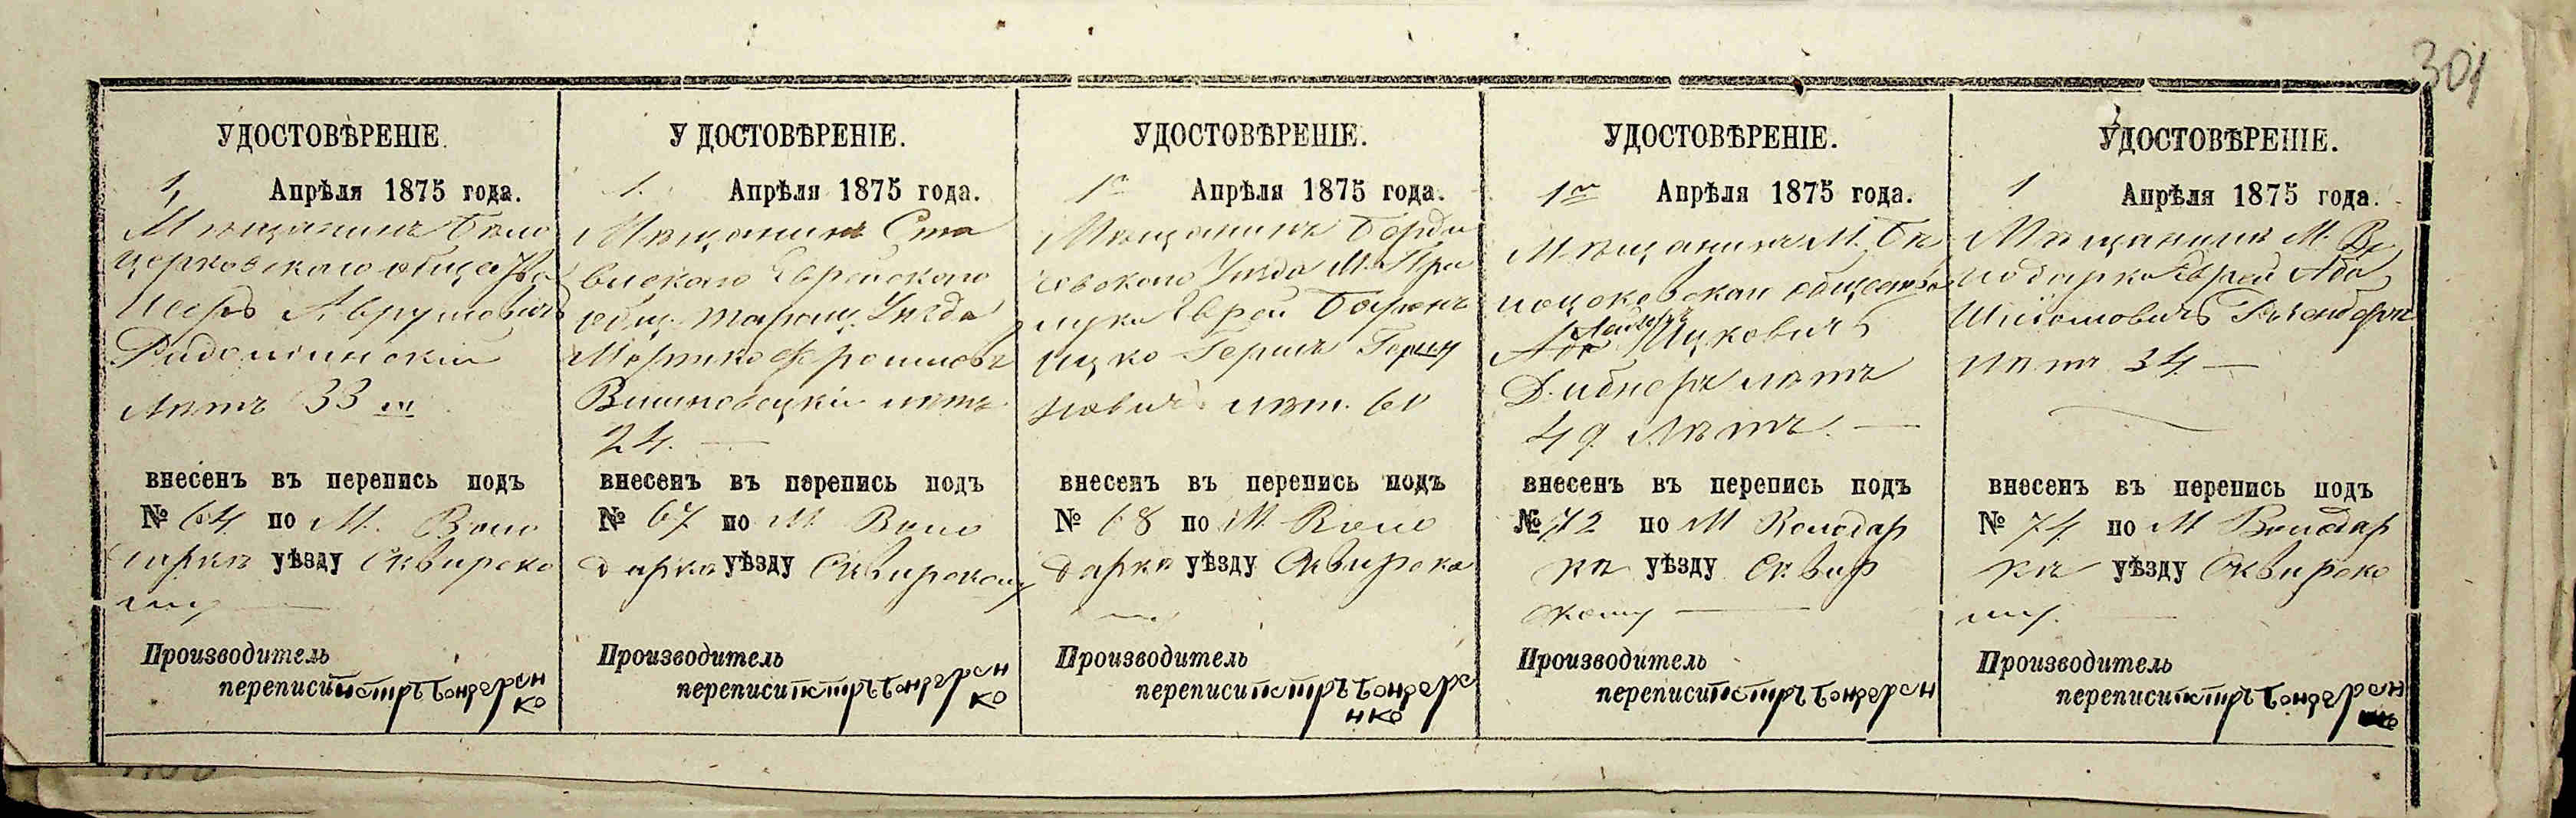 301
УДОСТОВѢРЕНІЕ.
1, Апрѣля 1875 года.
Мѣщанинъ Бѣло
церковскаго общества
Аврумовичъ
Радомшинскій
лѣтъ 33
внесенъ въ перепись подъ
№ 64 по М. Воло
даркѣ уѣзду Сквирско
му
Производитель
переписи Петръ Бондарен
ко
У ДОСТОВѢРЕНІЕ.
1. Апрѣля 1875 года.
Мѣщанинъ Ста
вискаго Еврейскаго
общ. Таращ. Уѣзда
Мортко Фроимовъ
Вишновецкій лѣтъ
24.
внесенъ въ перепись подъ
№ 67 по М Воло
даркѣ уѣзду Сквирскому
Производитель
переписи Петръ Бондарен
ко
УДОСТОВѢРЕНІЕ.
1 Апрѣля 1875 года.
Мѣщанинъ Берди
чевскаго Уѣзда М. При
лука Еврей
Ицко Гершъ Герш
ковичъ лѣт. 60
внесенъ въ перепись подъ
№ 68 по М Воло
даркѣ уѣзду Сквирско
Производитель
переписи Петръ Бондаре
нко
УДОСТОВѢРЕНІЕ.
1 Апрѣля 1875 года.
Мѣщанинъ М. Бѣ
лоцерковскаго общества
Ицковичъ
лѣтъ
49 лѣтъ.
внесенъ въ перепись подъ
№ 72 по М Володар
кѣ уѣзду Сквир
скому
Производитель
переписи Петръ Бондарен
УДОСТОВѢРЕНІЕ.
1 Апрѣля 1875 года.
Мѣщанинъ М. Во
лодарка Еврей Аба
Шліомовичъ
лѣтъ 34
внесенъ въ перепись подъ
№ 74 по М Володар
кѣ уѣзду Сквирско
му.
Производитель
переписи Петръ Бондарен